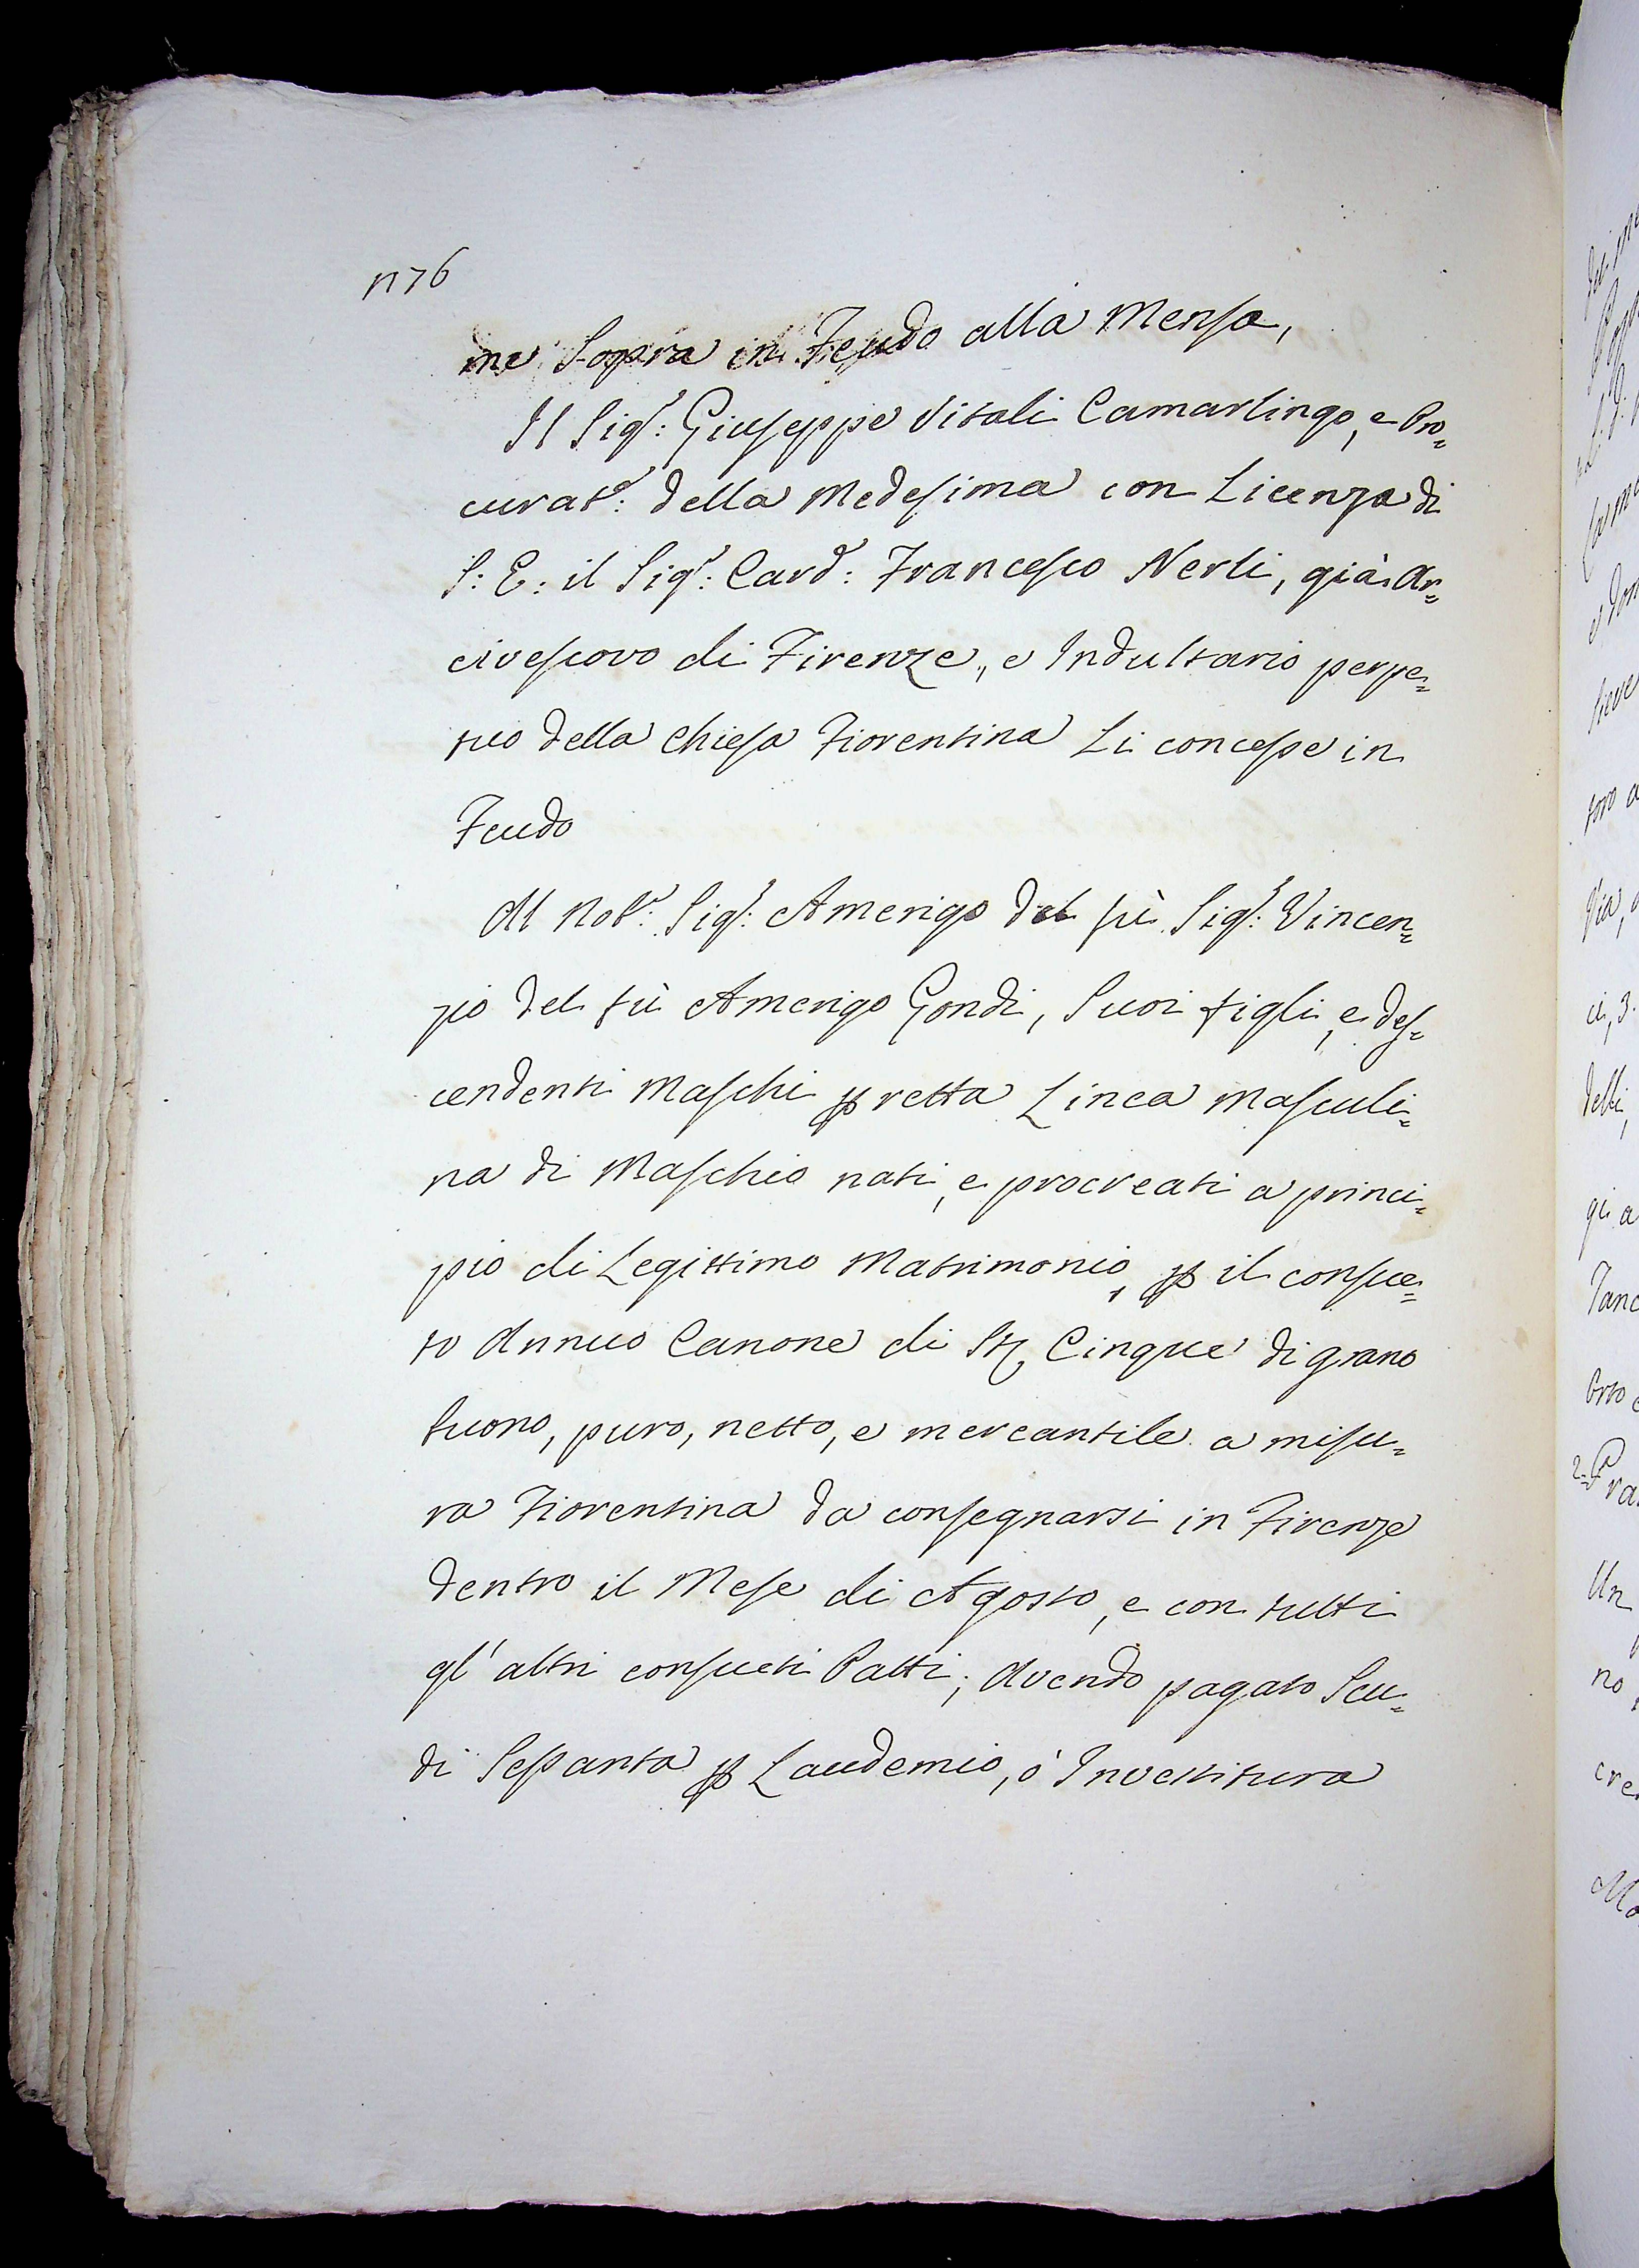 n76
me Sopra in Feudo alla Mensa,
Il Sig.r: Giuseppe Vitali Camarlingo, e Pro=
curat.e: della Medesima con Licenza di
S: E: il Sig.r: Card.: Francesco Nerli, già Ar=
civescovo di Firenze, e Indultario perpe=
tuo della Chiesa Fiorentina Li concesse in
Feudo
Al Nob.e: Sig.r: Amerigo del fù Sig.r: Vincen=
zio del fù Amerigo Gondi, Suoi figli, e des=
cendenti Maschi p retta Linea Masculi=
na di Maschio nati, e procreati a princi=
pio di Legittimo Matrimonio, p il consue=
to Annuo Canone di St. Cinque di grano
buono, puro, netto, e mercantile a misu=
ra Fiorentina da consegnarsi in Firenze
dentro il Mese di Agosto, e con tutti
gl'altri consueti Patti; Avendo pagato Scu=
di Sessanta p Laudemio, ò Investitura